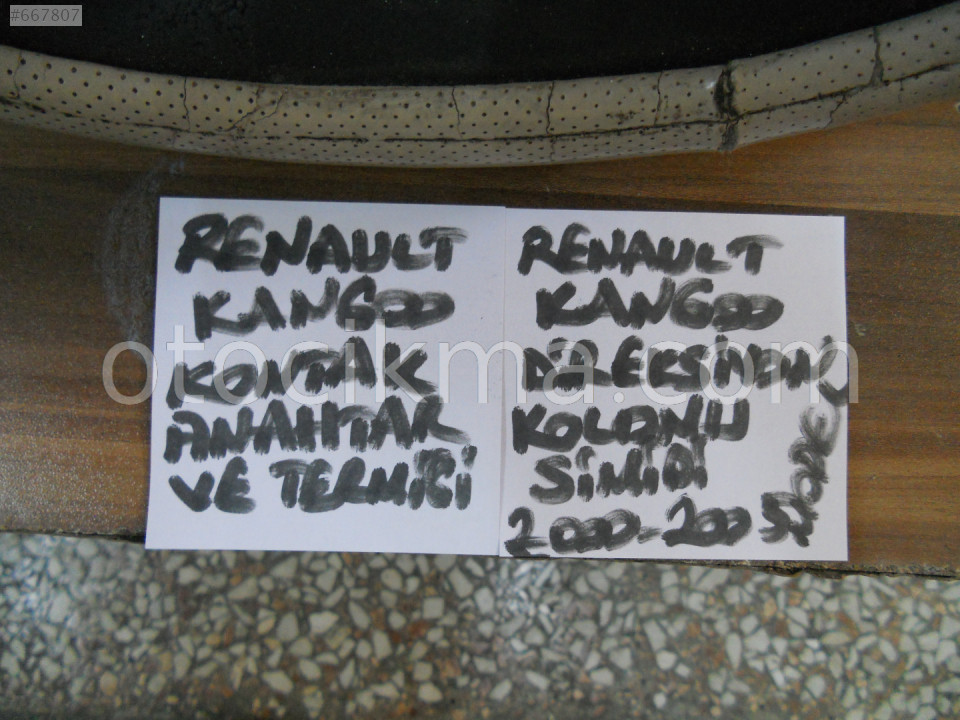 #667807
RENAULT
KANGOO
KONTAK
ANAHTAR
VE TERMİĞİ
RENAULT
KANGOO
DİREKSİYON
KOLONU
SİMİDİ
2000-2005
MODEL
otocikma.com